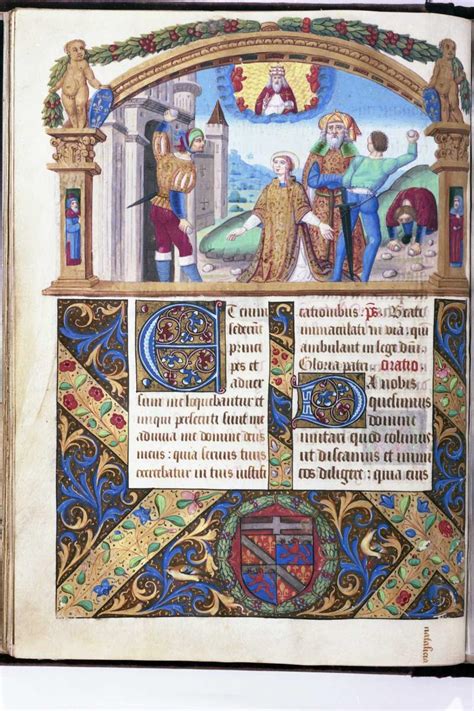 ETenim
sederunt
princi
pes et
aduer
sum me loquebantur et
iniqui persecuti sunt me
adiuua me domine deus
meus : quia seruus tuus
exercebatur in tuis iustifi
cationibus. ps. Beati
immaculati in via : qui
ambulant in lege dñi.
Gloria patri. Oratio
DA nobis
quesumus
domine
imitari quod colimus
ut discamus et inimi
cos diligere : quia eius
natalicia